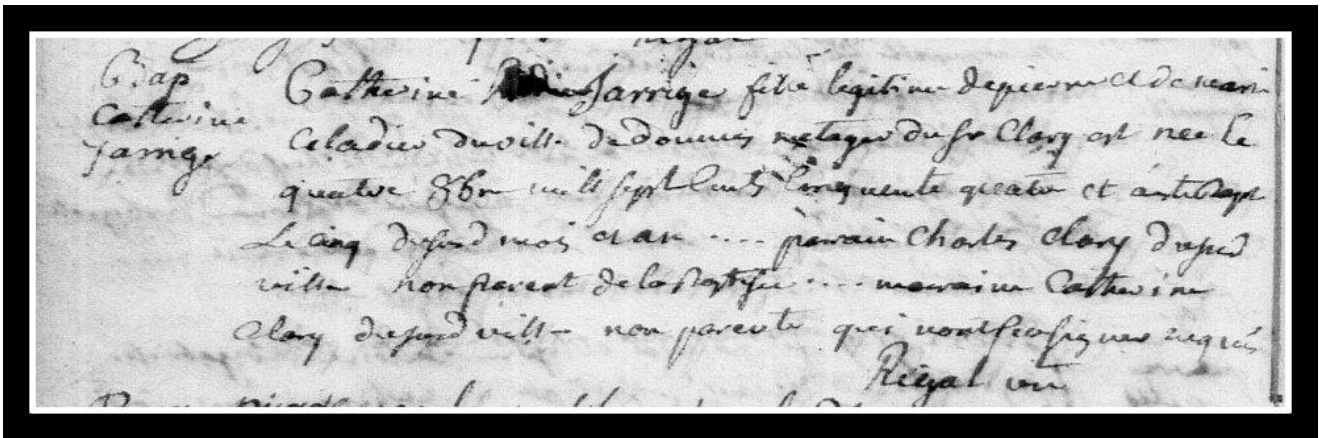 Bap
Catherine
Jarrige
Catherine Jarrige fille legitime de pierre et de marie
Celadier du vill. de doumis metager du Sr Clary est née le
quatre 8bre mill sept cents cinquente quatre et a été bapt
Le cinq dususd mois et an .... parrain Charles Clary dususd
villa non parent de la baptisée .... marraine Catherine
Clary dususd villa non parente qui n'ont scu signer requis
Rigal